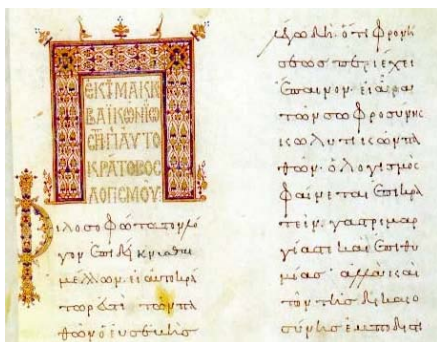 ΕΚ Τ ΜΑΚΚ
ΒΑΪΚῶΝ ΪΩ
ΣΗΠ ΑΥΤΟ
ΚΡΑΤΟΡΟΣ
ΛΟΓΙΣΜΟΥ
Φιλοσοφώτατον λό
γον ἐπιδείκνυσθαι
μέλλων. εἰ αὐτοκρά
τωρ ἐστὶ τῶν πα
θῶν ὁ εὐσεβὴς
λέγω δὴ. ὅτι φρονή
σεως περιέχει
ἔπαινον. εἰ ἄρα
τῶν σωφροσύνης
κωλυτικῶν πα
θῶν. ὁ λογισμὸς
φαίνεται ἐπικρα
τεῖν. γαστριμαρ
γίας τε καὶ ἐπιθυ
μίας· ἀλλὰ καὶ
τῶν τῆς δικαιο
σύνης ἐμποδιστι